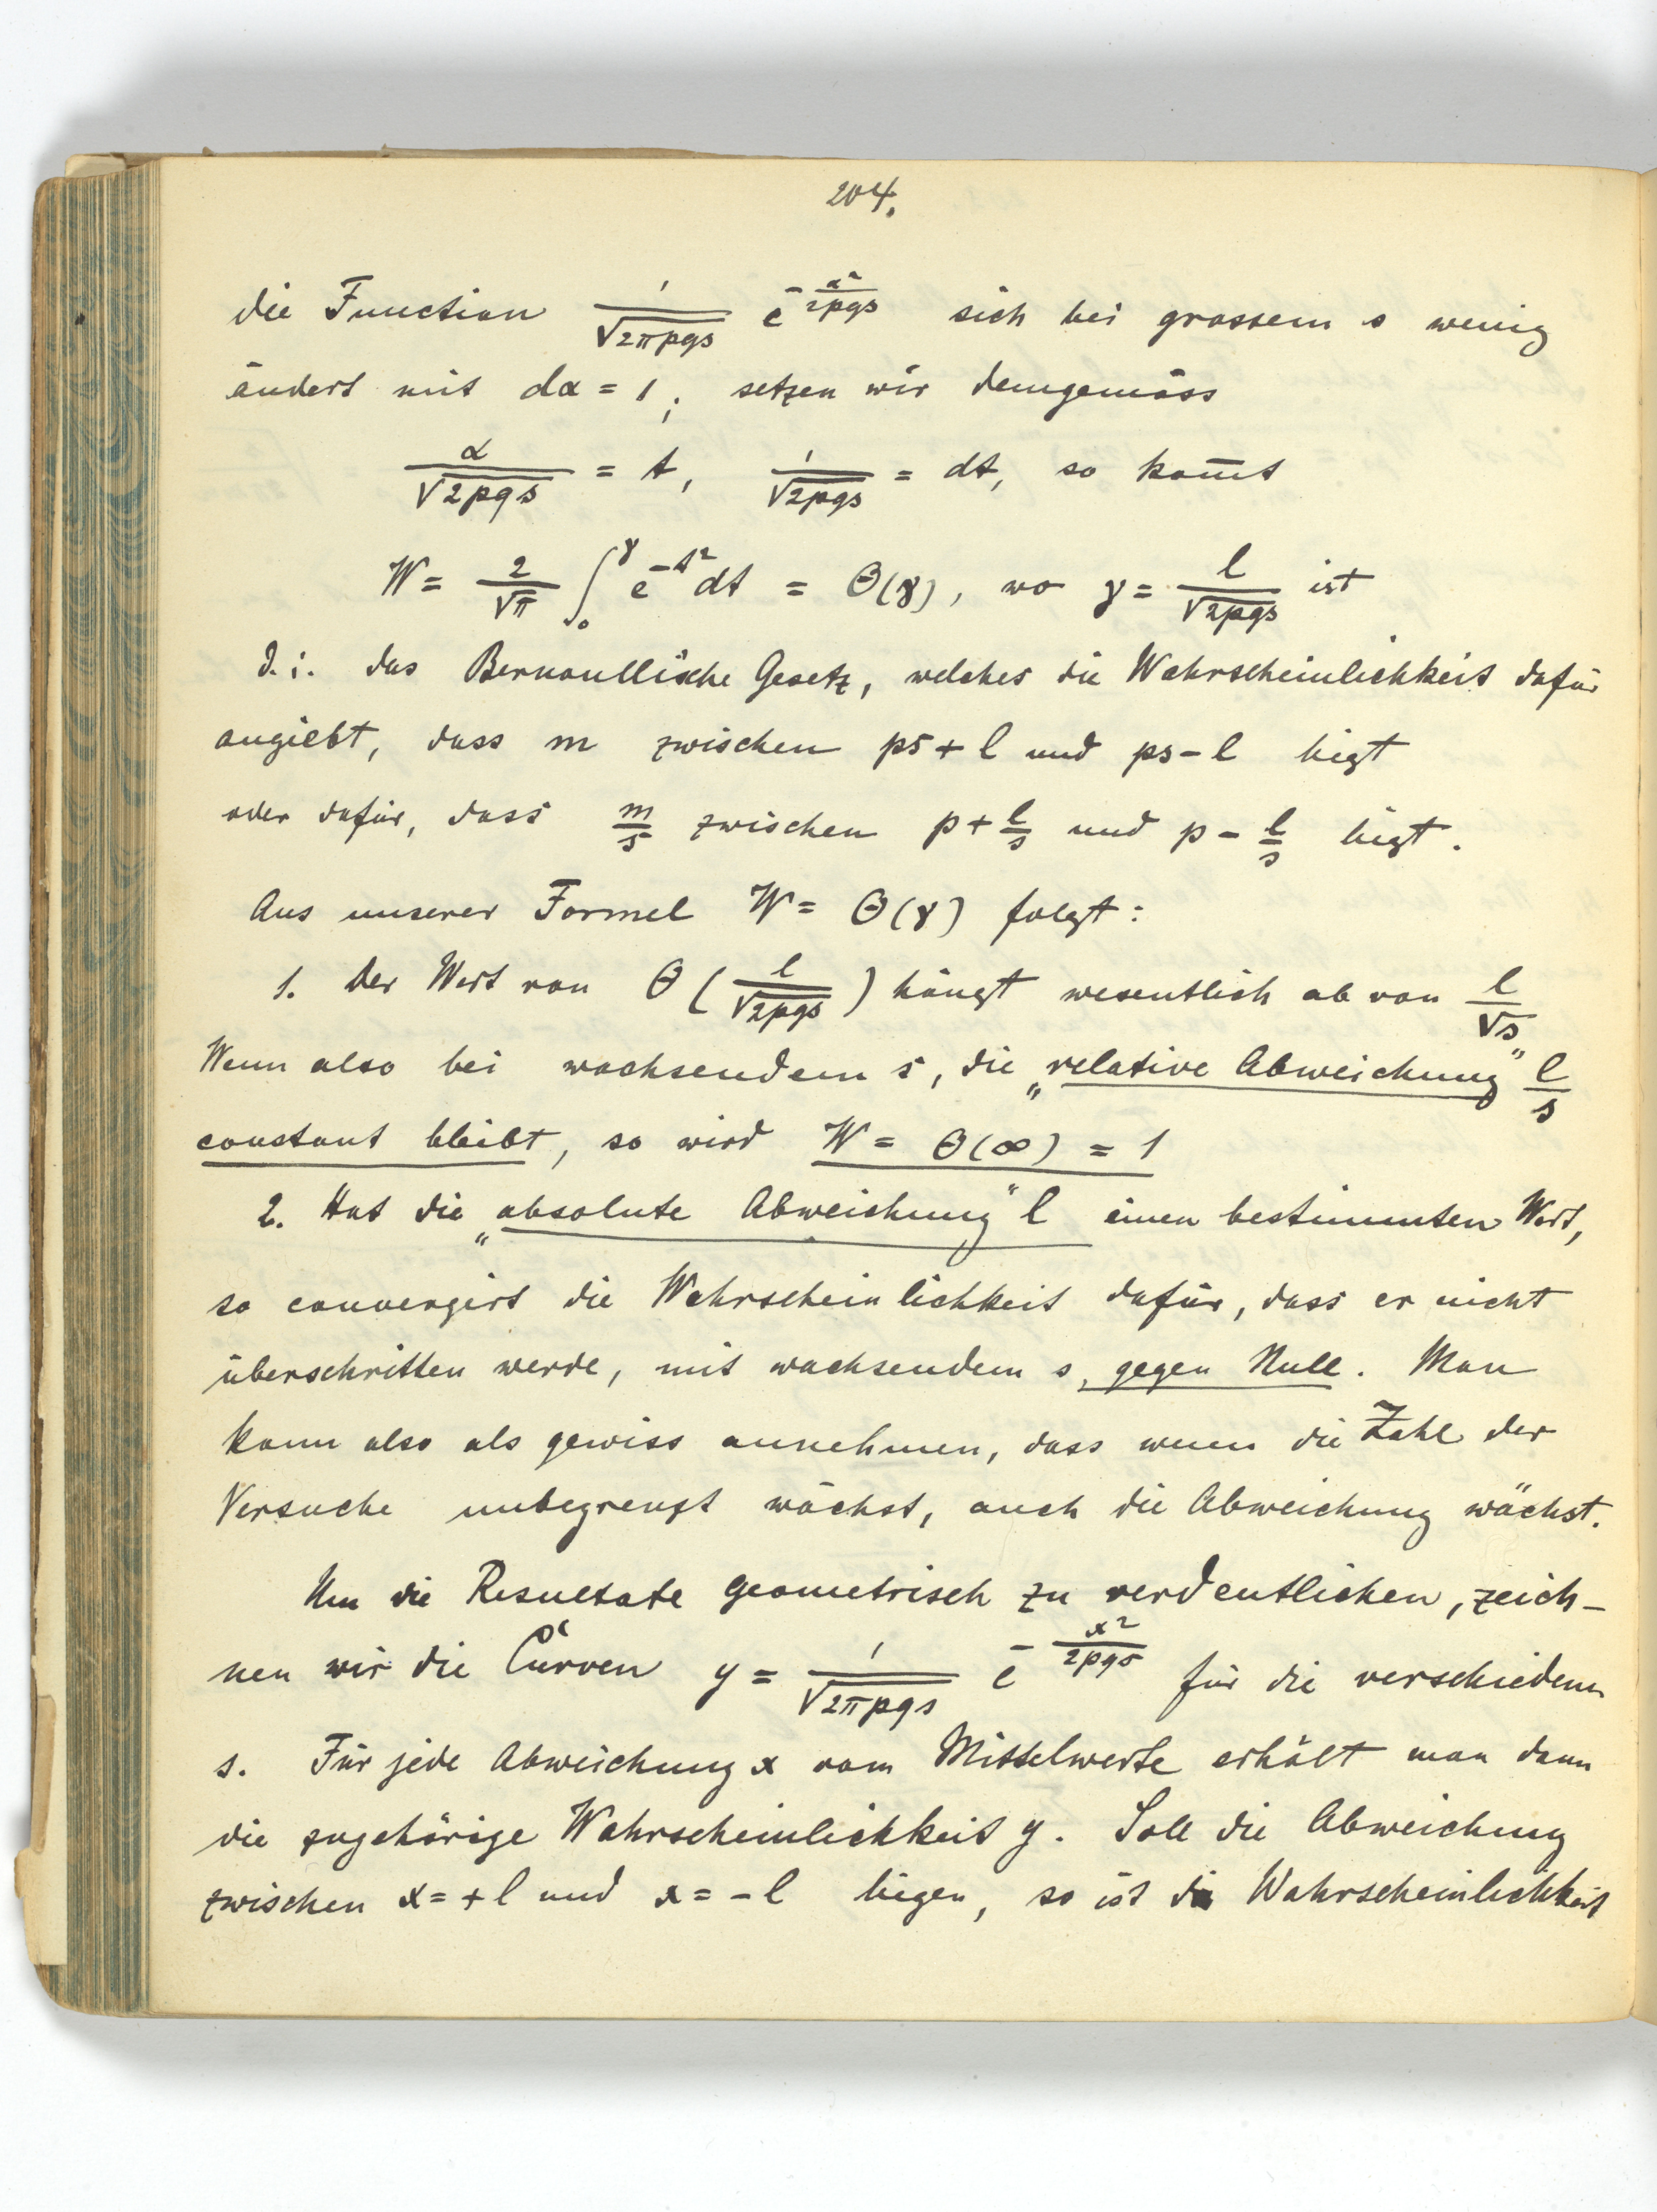 204.
die Function $\frac{1}{\sqrt{2\pi pqs}} e^{-\frac{\alpha^2}{2pqs}}$ sich bei grossem s wenig
ändert mit dα = 1; setzen wir demgemäss
$\frac{\alpha}{\sqrt{2pqs}} = t, \frac{1}{\sqrt{2pqs}} = dt$, so kom̅t
$W = \frac{2}{\sqrt{\pi}} \int_0^{\gamma} e^{-t^2} dt = \Theta(\gamma)$, wo $\gamma = \frac{l}{\sqrt{2pqs}}$ ist
d.i. das Bernoullische Gesetz, welches die Wahrscheinlichkeit dafür
angiebt, dass m zwischen ps + l und ps - l liegt
oder dafür, dass $\frac{m}{s}$ zwischen $p + \frac{l}{s}$ und $p - \frac{l}{s}$ liegt.
Aus unserer Formel W = Θ(γ) folgt:
1. Der Wert von $\Theta(\frac{l}{\sqrt{2pqs}})$ hängt wesentlich ab von $\frac{l}{\sqrt{s}}$
Wenn also bei wachsendem s, die „relative Abweichung" $\frac{l}{s}$
constant bleibt, so wird W = Θ(∞) = 1
2. Hat die „absolute Abweichung" l einen bestimmten Wert,
so convergirt die Wahrscheinlichkeit dafür, dass er nicht
überschritten werde, mit wachsendem s, gegen Null. Man
kann also als gewiss annehmen, dass wenn die Zahl der
Versuche unbegrenzt wächst, auch die Abweichung wächst.
Um die Resultate geometrisch zu verdeutlichen, zeich-
nen wir die Curven $y = \frac{1}{\sqrt{2\pi pqs}} e^{-\frac{x^2}{2pqs}}$ für die verschiedenen
s. Für jede Abweichung x vom Mittelwerte erhält man dann
die zugehörige Wahrscheinlichkeit y. Soll die Abweichung
zwischen x = + l und x = - l liegen, so ist die Wahrscheinlichkeit